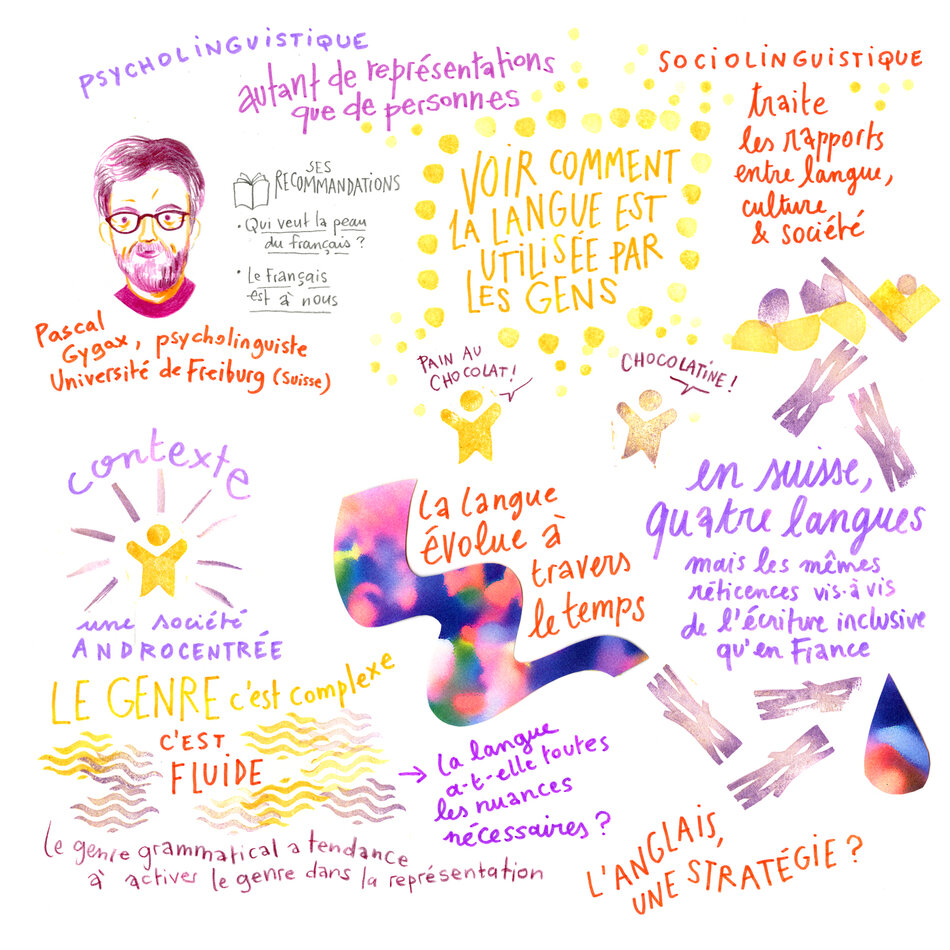 PSYCHOLINGUISTIQUE
autant de représentations
que de personnes
SES
RECOMMANDATIONS
• Qui veut la peau
du français ?
• Le Français
est à nous
Pascal
Gygax, psycholinguiste
Université de Freiburg (Suisse)
VOIR COMMENT
LA LANGUE EST
UTILISÉE PAR
LES GENS
PAIN AU
CHOCOLAT !
CHOCOLATINE !
SOCIOLINGUISTIQUE
traite
les rapports
entre langue,
culture
& société
contexte
une société
ANDROCENTRÉE
la langue
évolue à
travers
le temps
en suisse,
quatre langues
mais les mêmes
réticences vis-à vis
de l'écriture inclusive
qu'en France
LE GENRE c'est complexe
C'EST
FLUIDE
→ la langue
a-t-elle toutes
les nuances
nécessaires ?
le genre grammatical a tendance
à activer le genre dans la représentation
L'ANGLAIS,
UNE STRATÉGIE ?